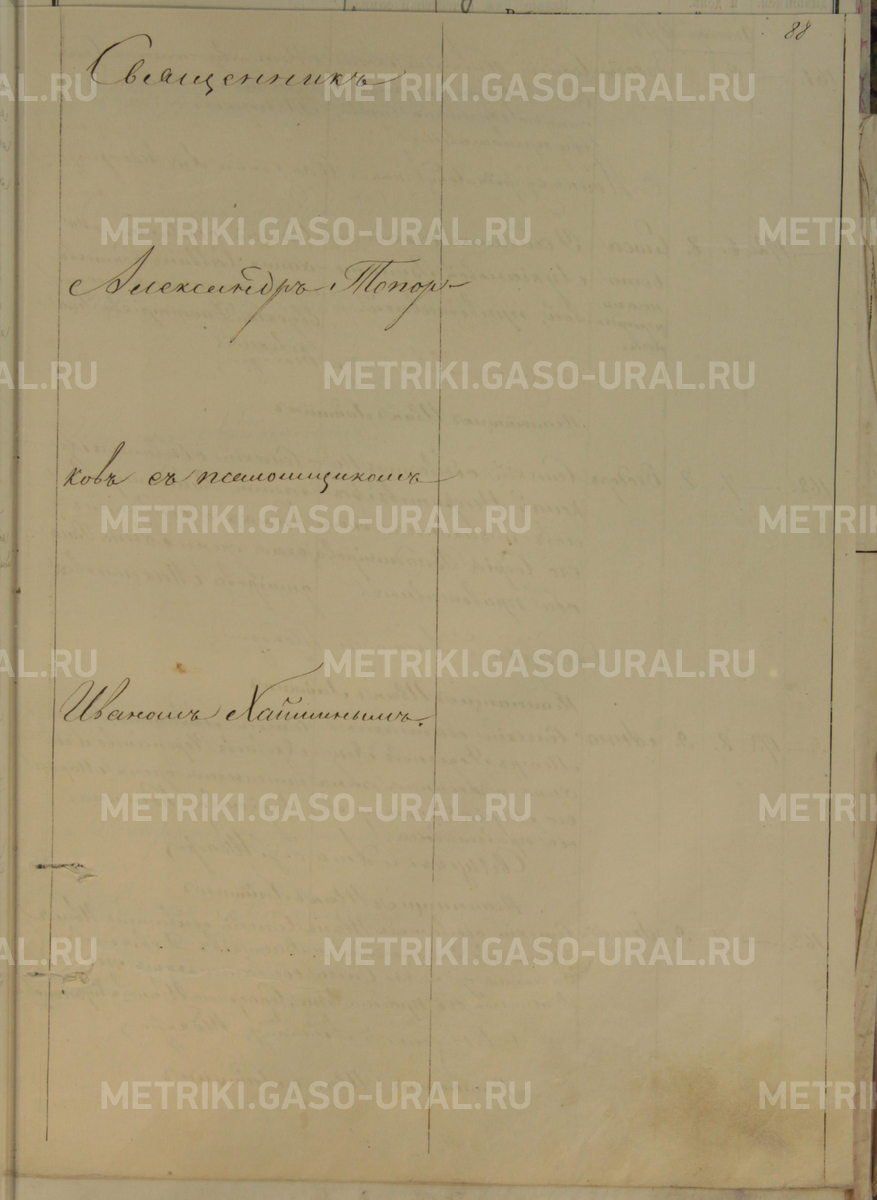 88
Священникъ
Александръ Топор-
ковъ съ псаломщикомъ
Иваномъ
METRIKI.GASO-URAL.RU